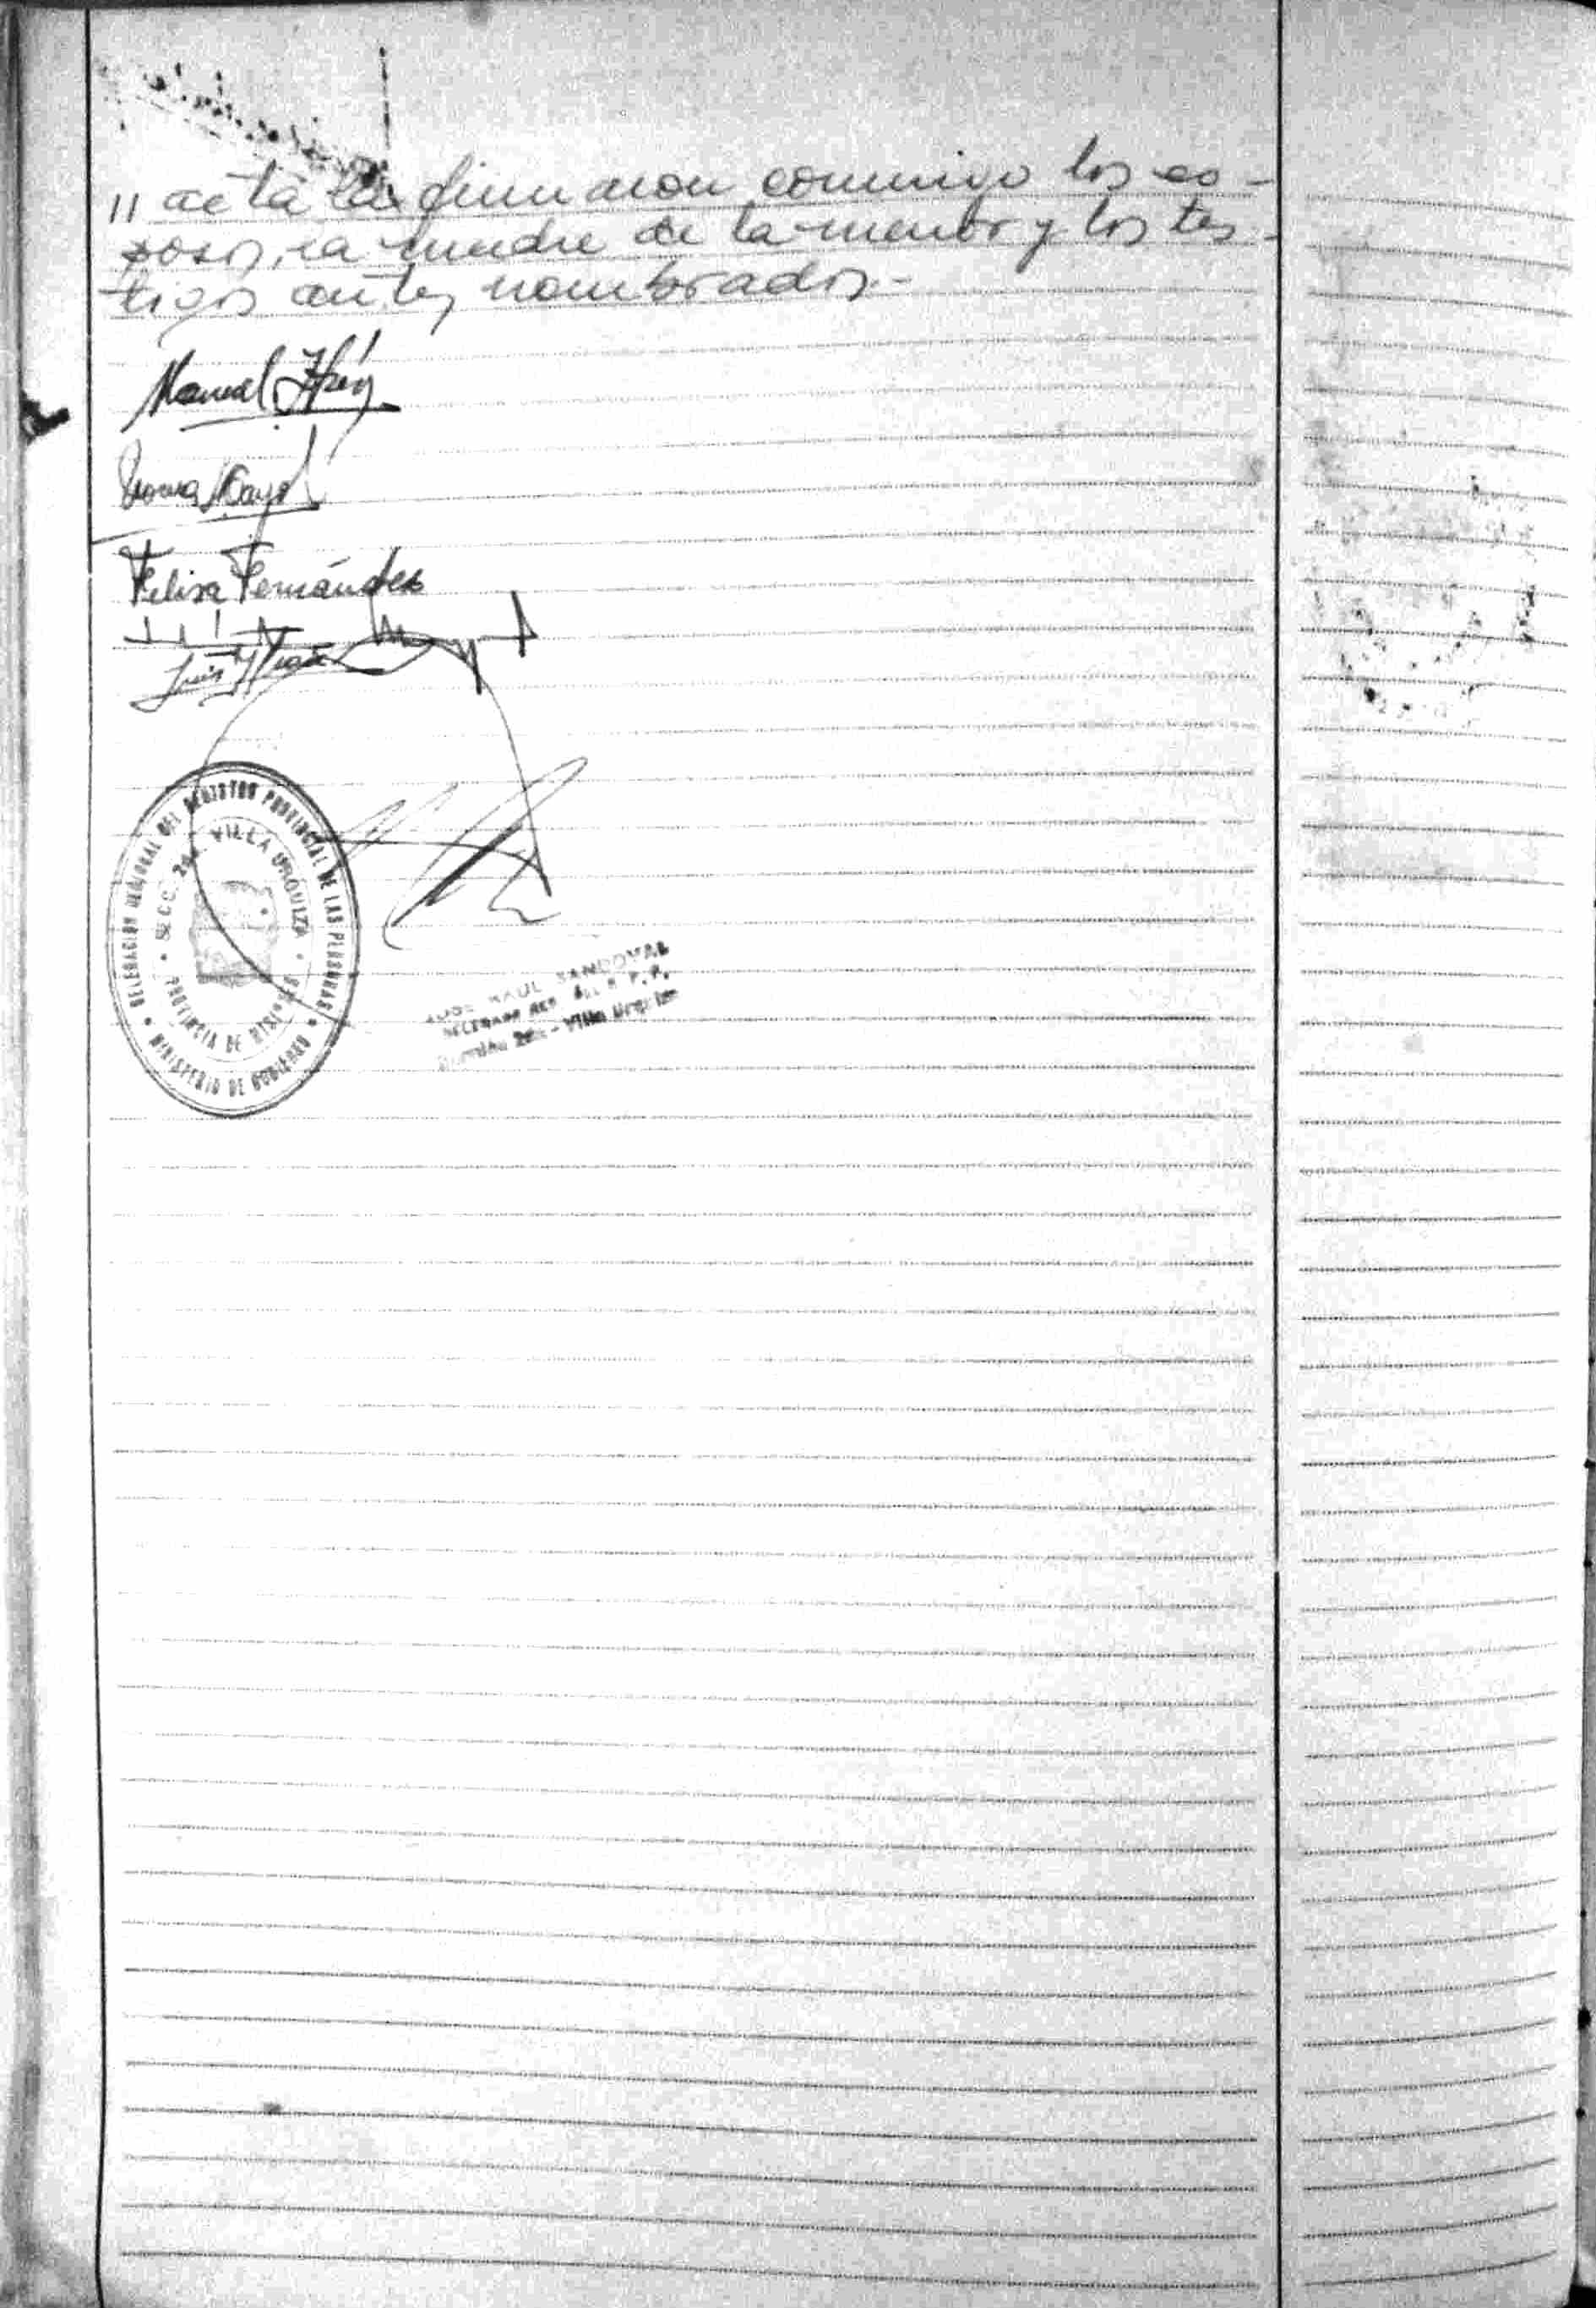 // acta la firmaron conmigo los es-
posos, la madre de la menor y los tes-
tigos antes nombrados.-
Manuel
Felisa Fernández
Luis
DELEGACION REGIONAL DEL REGISTRO PROVINCIAL DE LAS PERSONAS
SECC. 2da. VILLA URQUIZA
PROVINCIA DE MISIONES
MINISTERIO DE GOBIERNO
JOSE RAUL SANDOVAL
DELEGADO REG. DEL R. P. P.
Sección 2da. - Villa Urquiza